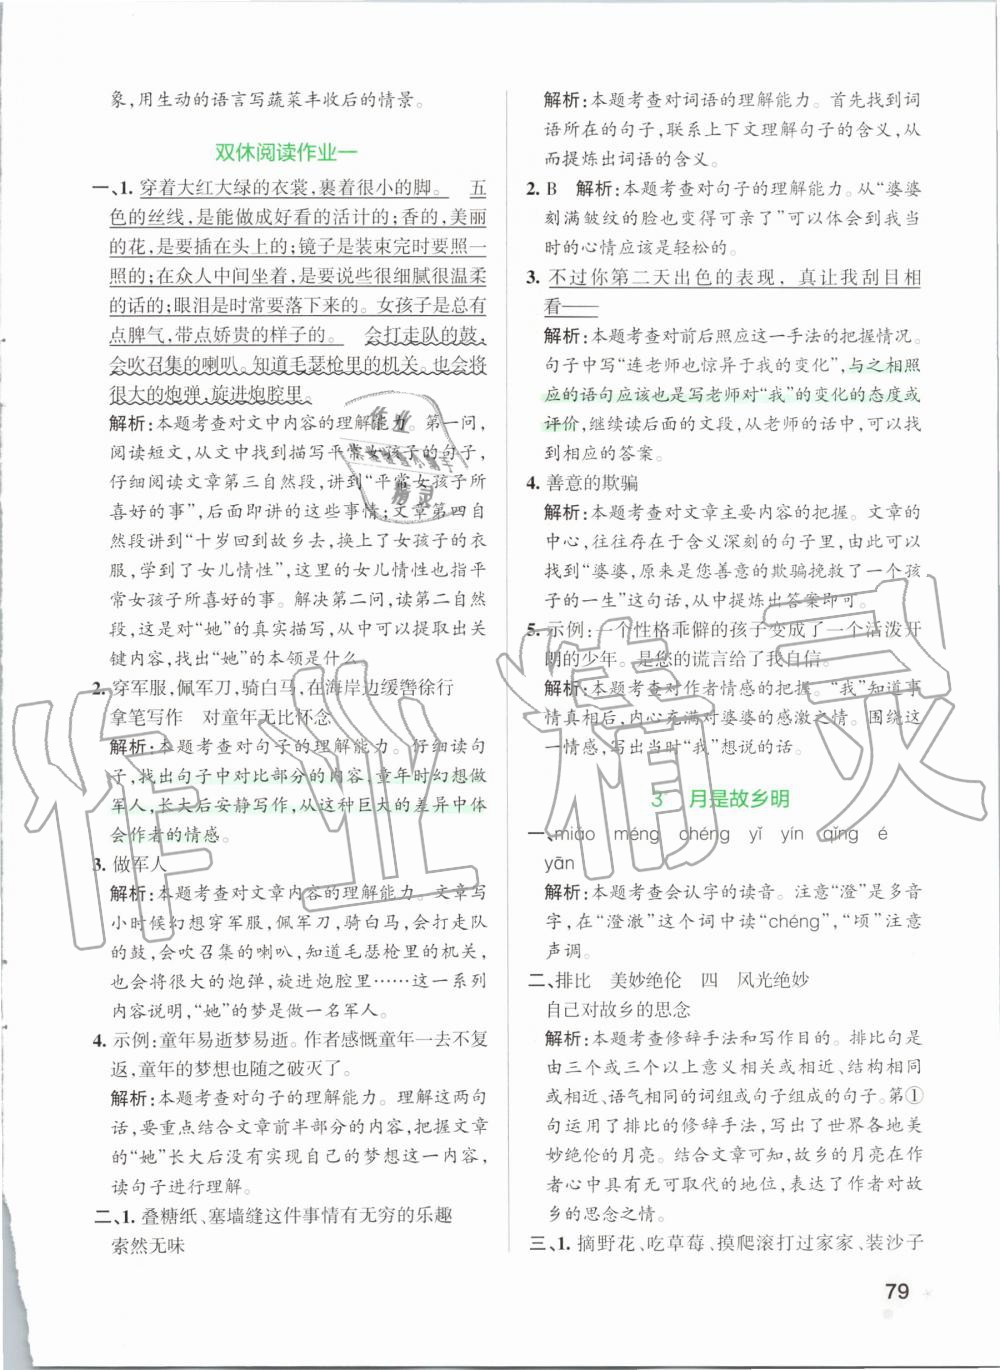 象,用生动的语言写蔬菜丰收后的情景。
双休阅读作业一
一、1. 穿着大红大绿的衣裳,裹着很小的脚。 五
色的丝线,是能做成好看的活计的;香的,美丽
的花,是要插在头上的;镜子是装束完时要照一
照的;在众人中间坐着,是要说些很细腻很温柔
的话的;眼泪是时常要落下来的。女孩子是总有
点脾气,带点娇贵的样子的。 会打走队的鼓,
会吹召集的喇叭。知道毛瑟枪里的机关。也会将
很大的炮弹,旋进炮腔里。
解析:本题考查对文中内容的理解能力。第一问,
阅读短文,从文中找到描写平常女孩子的句子,
仔细阅读文章第三自然段,讲到“平常女孩子所
喜好的事”,后面即讲的这些事情;文章第四自
然段讲到“十岁回到故乡去,换上了女孩子的衣
服,学到了女儿情性”,这里的女儿情性也指平
常女孩子所喜好的事。解决第二问,读第二自然
段,这是对“她”的真实描写,从中可以提取出关
键内容,找出“她”的本领是什么。
2. 穿军服,佩军刀,骑白马,在海岸边缓辔徐行
拿笔写作 对童年无比怀念
解析:本题考查对句子的理解能力。仔细读句
子,找出句子中对比部分的内容,童年时幻想做
军人,长大后安静写作,从这种巨大的差异中体
会作者的情感。
3. 做军人
解析:本题考查对文章内容的理解能力。文章写
小时候幻想穿军服,佩军刀,骑白马,会打走队
的鼓,会吹召集的喇叭,知道毛瑟枪里的机关,
也会将很大的炮弹,旋进炮腔里……这一系列
内容说明,“她”的梦是做一名军人。
4. 示例:童年易逝梦易逝。作者感慨童年一去不复
返,童年的梦想也随之破灭了。
解析:本题考查对句子的理解能力。理解这两句
话,要重点结合文章前半部分的内容,把握文章
的“她”长大后没有实现自己的梦想这一内容,
读句子进行理解。
二、1. 叠糖纸、塞墙缝这件事情有无穷的乐趣
索然无味
解析:本题考查对词语的理解能力。首先找到词
语所在的句子,联系上下文理解句子的含义,从
而提炼出词语的含义。
2. B 解析:本题考查对句子的理解能力。从“婆婆
刻满皱纹的脸也变得可亲了”可以体会到我当
时的心情应该是轻松的。
3. 不过你第二天出色的表现,真让我刮目相
看——
解析:本题考查对前后照应这一手法的把握情况。
句子中写“连老师也惊异于我的变化”,与之相照
应的语句应该也是写老师对“我”的变化的态度或
评价,继续读后面的文段,从老师的话中,可以找
到相应的答案。
4. 善意的欺骗
解析:本题考查对文章主要内容的把握。文章的
中心,往往存在于含义深刻的句子里,由此可以
找到“婆婆,原来是您善意的欺骗挽救了一个孩
子的一生”这句话,从中提炼出答案即可。
5. 示例:一个性格乖僻的孩子变成了一个活泼开
朗的少年。 您的谎言给了我自信。
解析:本题考查对作者情感的把握。“我”知道事
情真相后,内心充满对婆婆的感激之情。围绕这
一情感,写出当时“我”想说的话。
3 月是故乡明
一、miǎo méng chéng yǐ yín qǐng é
yān
解析:本题考查会认字的读音。注意“澄”是多音
字,在“澄澈”这个词中读“chéng”,“顷”注意
声调。
二、排比 美妙绝伦 四 风光绝妙
自己对故乡的思念
解析:本题考查修辞手法和写作目的。排比句是
由三个或三个以上意义相关或相近、结构相同
或相近、语气相同的词组或句子组成的句子。第①
句运用了排比的修辞手法,写出了世界各地美
妙绝伦的月亮。结合文章可知,故乡的月亮在作
者心中具有无可取代的地位,表达了作者对故
乡的思念之情。
三、1. 摘野花、吃草莓、摸爬滚打过家家、装沙子
79
作业精灵